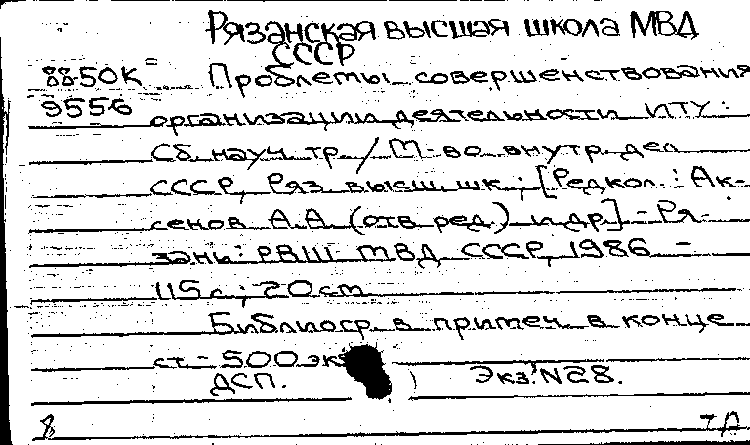 Рязанская высшая школа МВД
СССР
88-50К Проблемы совершенствования
9556 организации деятельности ИТУ:
Сб. науч. тр. / М-во внутр. дел
СССР, Ряз. высш. шк.; [Редкол.: Ак-
сенов А.А. (отв. ред.) и др.] - Ря-
зань: РВШ МВД СССР, 1986 -
115 с.; 20 cm
Библиогр. в примеч. в конце
ст. - 500 экз
ДСП. ) Экз. N 28.
8 тА